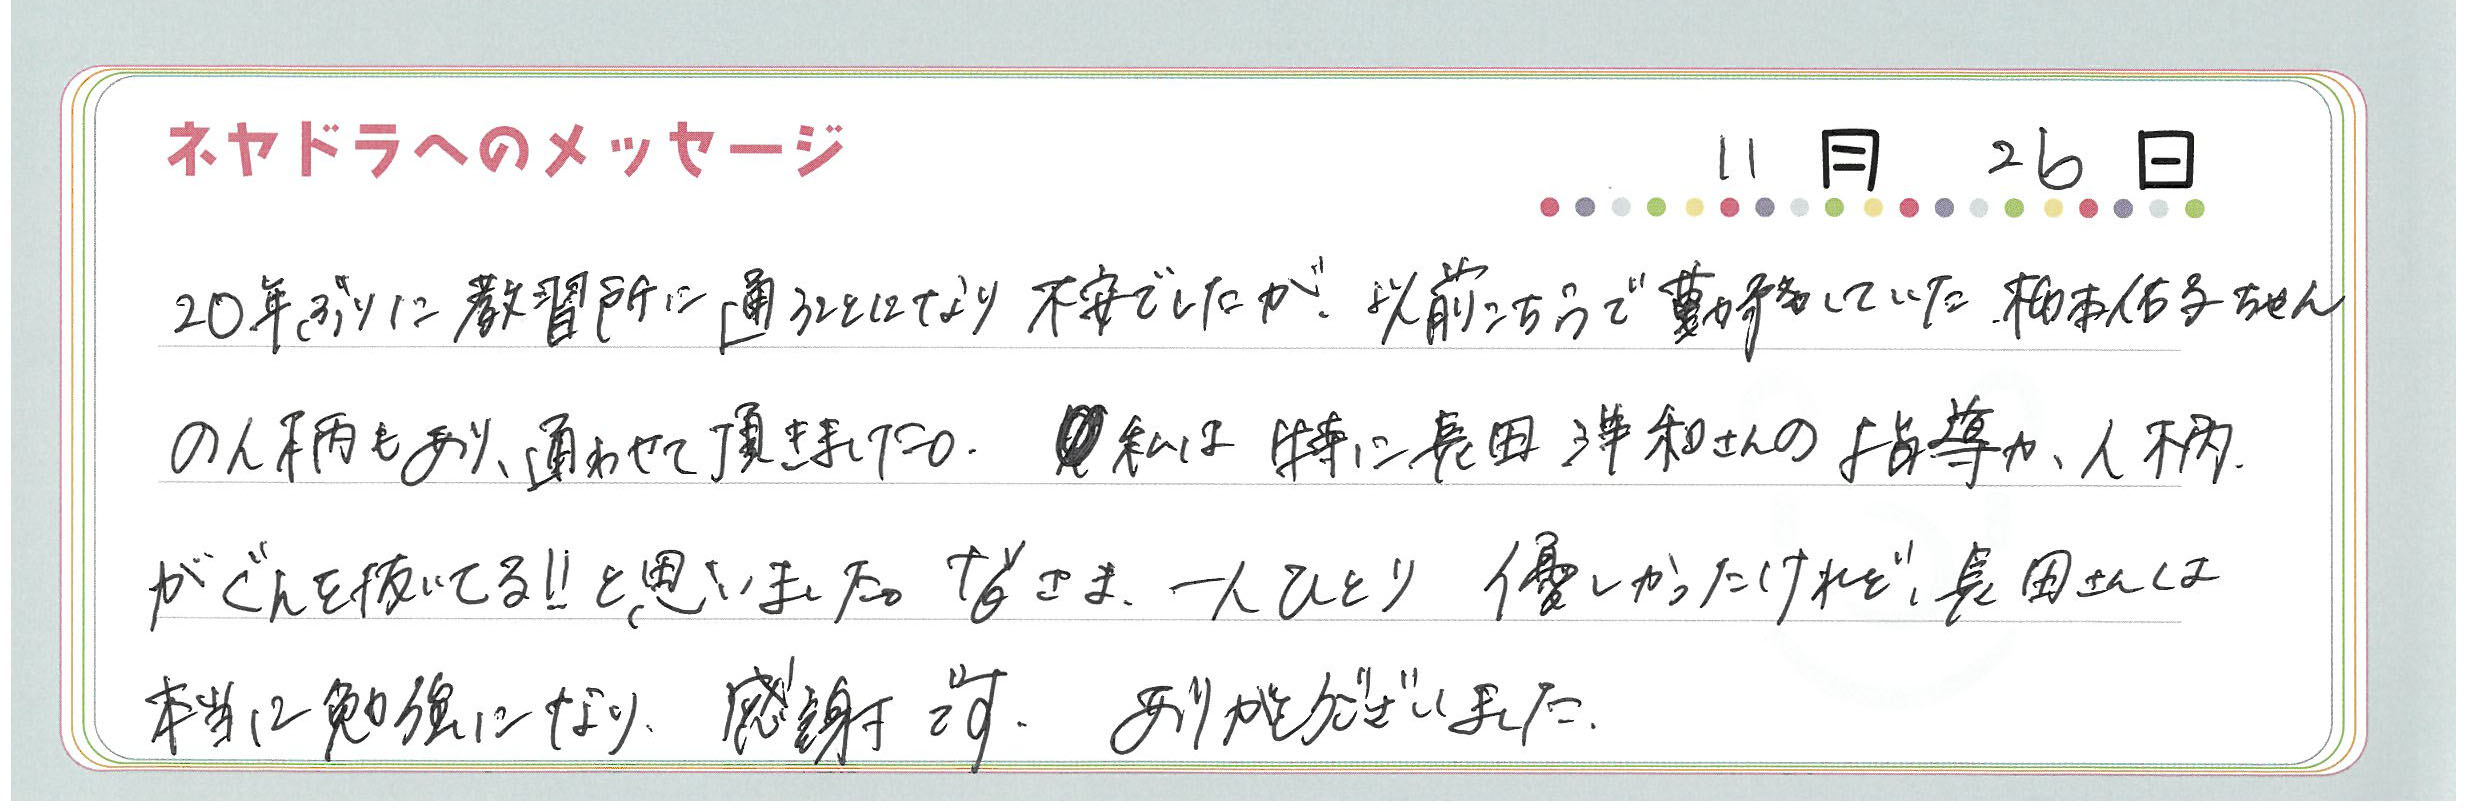 ネヤドラへのメッセージ
11月 26日
20年ぶりに教習所に通うことになり不安でしたが、以前こちらで勤務していた柏本佑子ちゃん
の人柄もあり、通わせて頂きました。私は特に長田洋和さんの指導力、人柄
がぐんを抜いてる!!と思いました。なさま、一人ひとり 優しかったけれど、長田さんは
本当に勉強になり、感謝です。ありがとうございました。